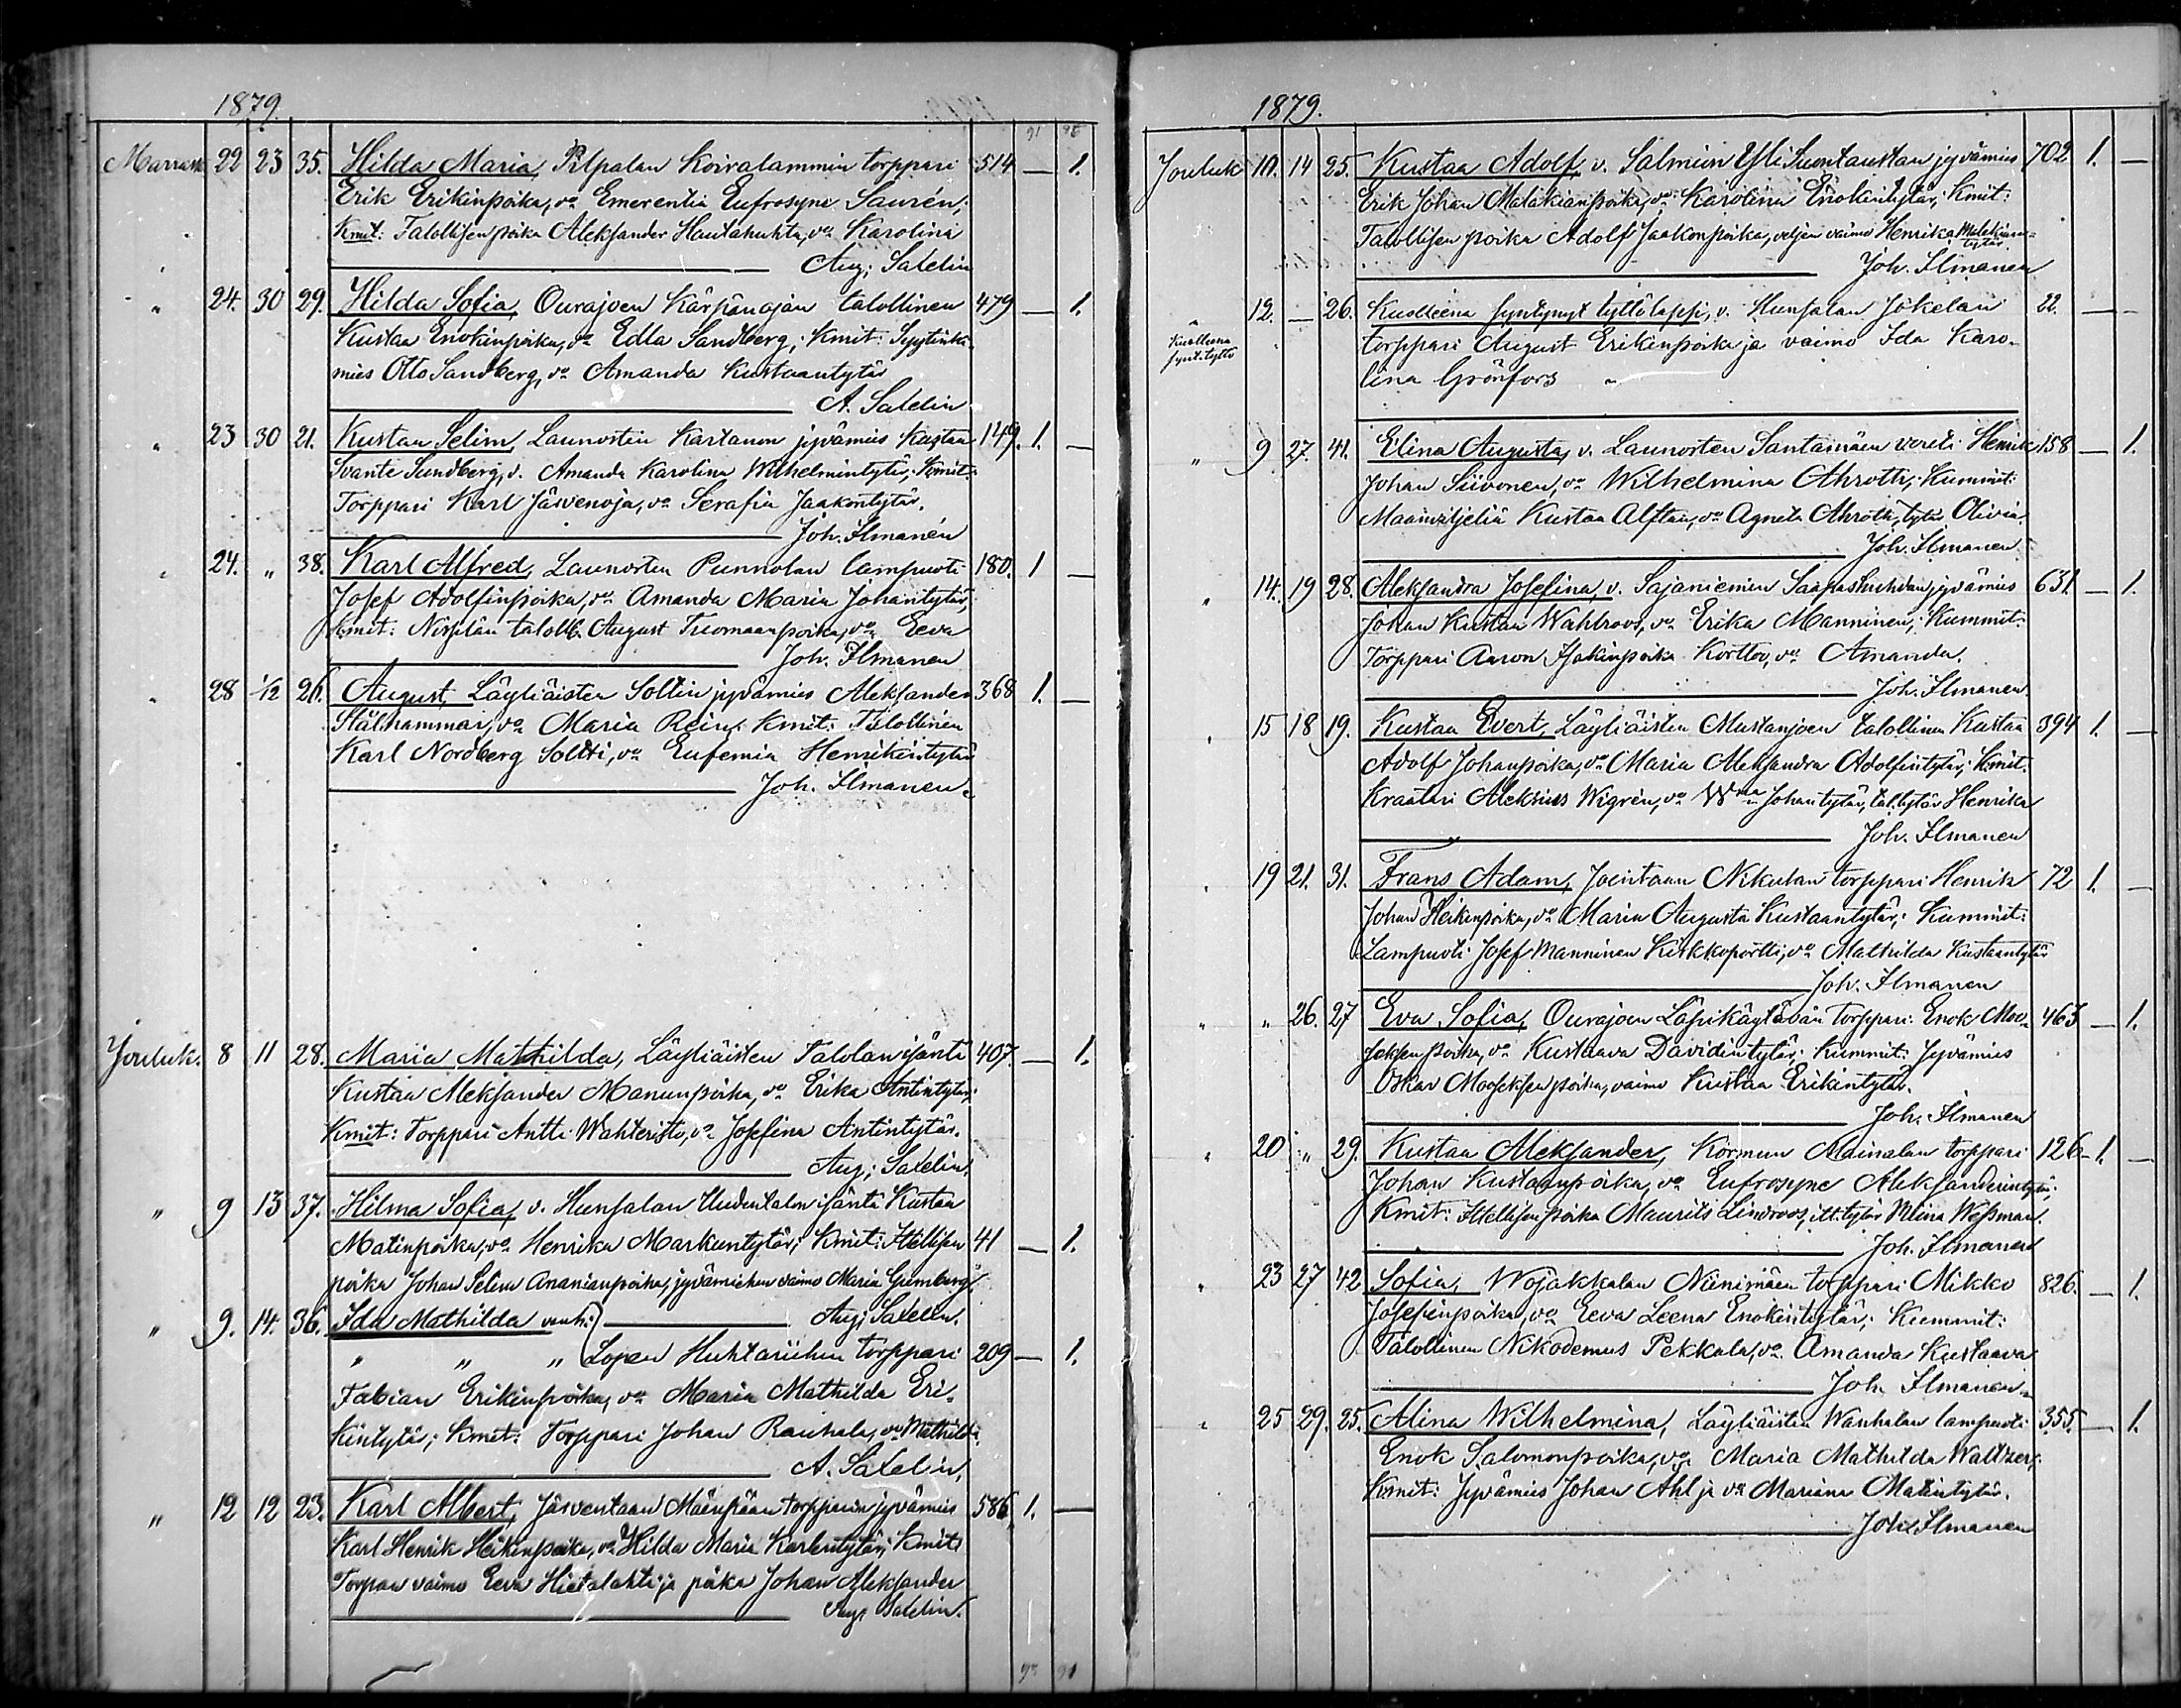 1879.
91 98
Marrask 22 23 35. Hilda Maria, Pilpalan Koivalammin torppari 514 — 1.
Erik Erikinpoika, vo Emerentia Eufrosyne Saurén;
Kmit: Talollisen poika Aleksander Hautahuhta, vo Karolina
Aug; Saxelin
" 24. 30 29. Hilda Sofia, Ourajoen Kärpänojan talollinen 479 — 1.
Kustaa Enokinpoika, vo Edla Sandberg; Kmit:
mies Otto Sandberg, vo Amanda Kustaantytär
A. Saxelin
" 23 30 21. Kustaa Selim, Launosten Kartanon jyvämies Kustaa 149. 1. —
Svante Sundberg, v. Amanda Karolina Wilhelmintytär; Kmit:
Torppari Karl Järvenoja, vo Serafia Jaakontytär.
Joh. Ilmanen
" 24. " 38. Karl Alfred, Launosten Punnolan lampuoti 180. 1 —
Josef Adolfinpoika, vo Amanda Maria Johantytär,
Kmit: taloll. August Tuomaanpoika, vo Eeva
Joh. Ilmanen
" 28 1/12 26. August, Läyliäisten Soltin jyvämies Aleksander 368 1. —
Stålhammar, vo Maria Rein; Kmit: Talollinen
Karl Nordberg Soltti, vo Eufemia Henrikintytär
Joh. Ilmanen.
Jouluk. 8 11 28. Maria Mathilda, Läyliäisten Talolan isäntä 407. — 1.
Kustaa Aleksander Manunpoika, vo Erika Antintytär;
Kmit: Torppari Antti Wahteristo, vo Josefina Antintytär.
Aug; Saxelin.
" 9 13 37. Hilma Sofia, v. Hunsalan Uudentalon isäntä Kustaa
Matinpoika, vo Henrika Markuntytär; Kmit: Itellisen 41 — 1.
poika Johan Selim Ananianpoika, jyvämiehen vaimo Maria
" 9. 14. 36. Ida Mathilda Aug; Saxelin.
" " " Lopen Huhtariihen torppari 209 — 1.
Fabian Erikinpoika, vo Maria Mathilda Eri-
kintytär; Kmit: Torppari Johan Rauhala, vo Mathilda.
A. Saxelin,
" 12 12 23. Karl Albert, Järventaan Mäenpään torpparin jyvämies 586 1. —
Karl Henrik Heikinpoika, vo Hilda Maria Karlentytär; Kmit:
Torpan vaimo Eeva Hietalahti ja poika Johan Aleksander
Aug; Saxelin.
1879.
Jouluk 10. 14 25. Kustaa Adolf, v. Salmion Yli Suontaustan jyvämies 702 1. —
Erik Johan Malakianpoika, vo Karolina Enokintytär; Kmit:
Talollisen poika Adolf Jaakonpoika, veljen vaimo Henrika Malakian-
tytär.
Joh. Ilmanen
" 12. — 26. Kuolleena syntynyt tyttölapsi, v. Hunsalan Jokelan 22. — —
Kuolleena
synt. tyttö
torppari August Erikinpoika ja vaimo Ida Karo-
lina Grönfors
" 9 27. 41. Elina Augusta, v. Launosten Santamäen Henrik 158 — 1.
Johan Siivonen, vo Wilhelmina Ahroth; Kummit:
Maanviljeliä Kustaa Alftan, vo Agneta Ahroth, tytär Olivia.
Joh. Ilmanen
" 14. 19 28. Aleksandra Josefina, v. Sajaniemen jyvämies 631. — 1.
Johan Kustaa Wahlroos, vo Erika Manninen; Kummit:
Torppari Aaron Isakinpoika Kortto, vo Amanda.
Joh. Ilmanen
" 15 18 19. Kustaa Evert, Läyliäisten Mustanjoen talollinen Kustaa 394 1. —
Adolf Johanpoika, vo Maria Aleksandra Adolfintytär; Kmit.
Kraatari Aleksius Wigrén, vo Wma Johantytär, tal. tytär Henrika
Joh. Ilmanen
" 19 21. 31. Frans Adam, Joentaan Nikulan torppari Henrik 72 1. —
Johan Heikinpoika, vo Maria Augusta Kustaantytär; Kummit:
Lampuoti Josef Manninen Kirkkoportti, vo Mathilda Kustaantytär
Joh. Ilmanen
" " 26. 27 Eva Sofia, Ourajoen Läpikäytävän torppari Enok Moo- 463 — 1.
seksenpoika, vo Kustaava Davidintytär; Kummit: Jyvämies
Oskar Mooseksenpoika, vaimo Kustaa Erikintytär.
Joh. Ilmanen
" 20 " 29. Kustaa Aleksander, Kormun Mainalan torppari 126 1. —
Johan Kustaanpoika, vo Eufrosyne Aleksanderintytär;
Kmit: Itellisen poika Maurits Lindroos, itt. tytär Miina Wessman.
Joh. Ilmanen
" 23 27 42 Sofia, Wojakkalan Niinimäen torppari Mikko 826. — 1.
Josefinpoika, vo Eeva Leena Enokintytär; Kummit:
Talollinen Nikodemus Pekkala, vo Amanda Kustaava
Joh. Ilmanen.
" 25 29. 25. Alina Wilhelmina, Läyliäisten Wanhalan lampuoti 355. — 1.
Enok Salomonpoika, vo Maria Mathilda Waltzer;
Kmit: Jyvämies Johan Ahl ja vo Mariana Matintytär.
Joh. Ilmanen